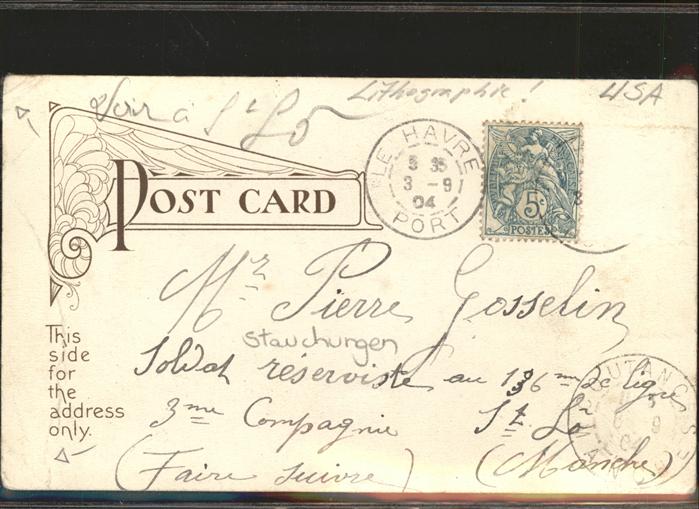 Voir à St Lô
Lithographie!
USA
POST CARD
LE HAVRE
3 35
3 -9
04
PORT
5c
POSTES
Mr Pierre Gosselin
Stauchungen
Soldat réserviste au 136me de ligne
3me Compagnie St. Lô
(Faire suivre) (Manche)
This
side
for
the
address
only.